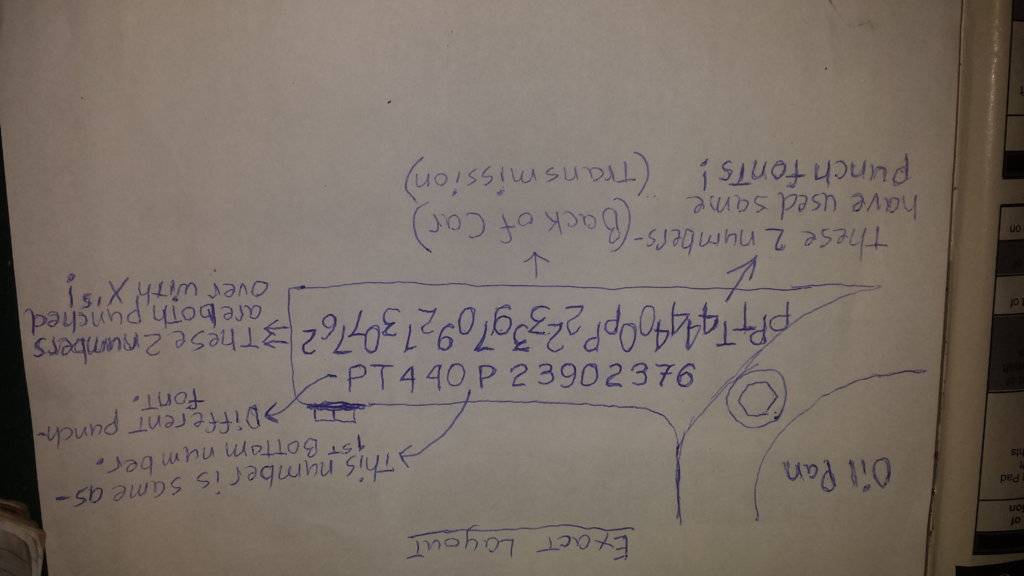 Exact Layout
Oil Pan
This number is same as-
1st Bottom number.
Different punch-
font.
PT440P23902376
These 2 numbers
are both punched
over with X's!
These 2 numbers-
have used same
punch fonts!
(Back of Car)
(Transmission)